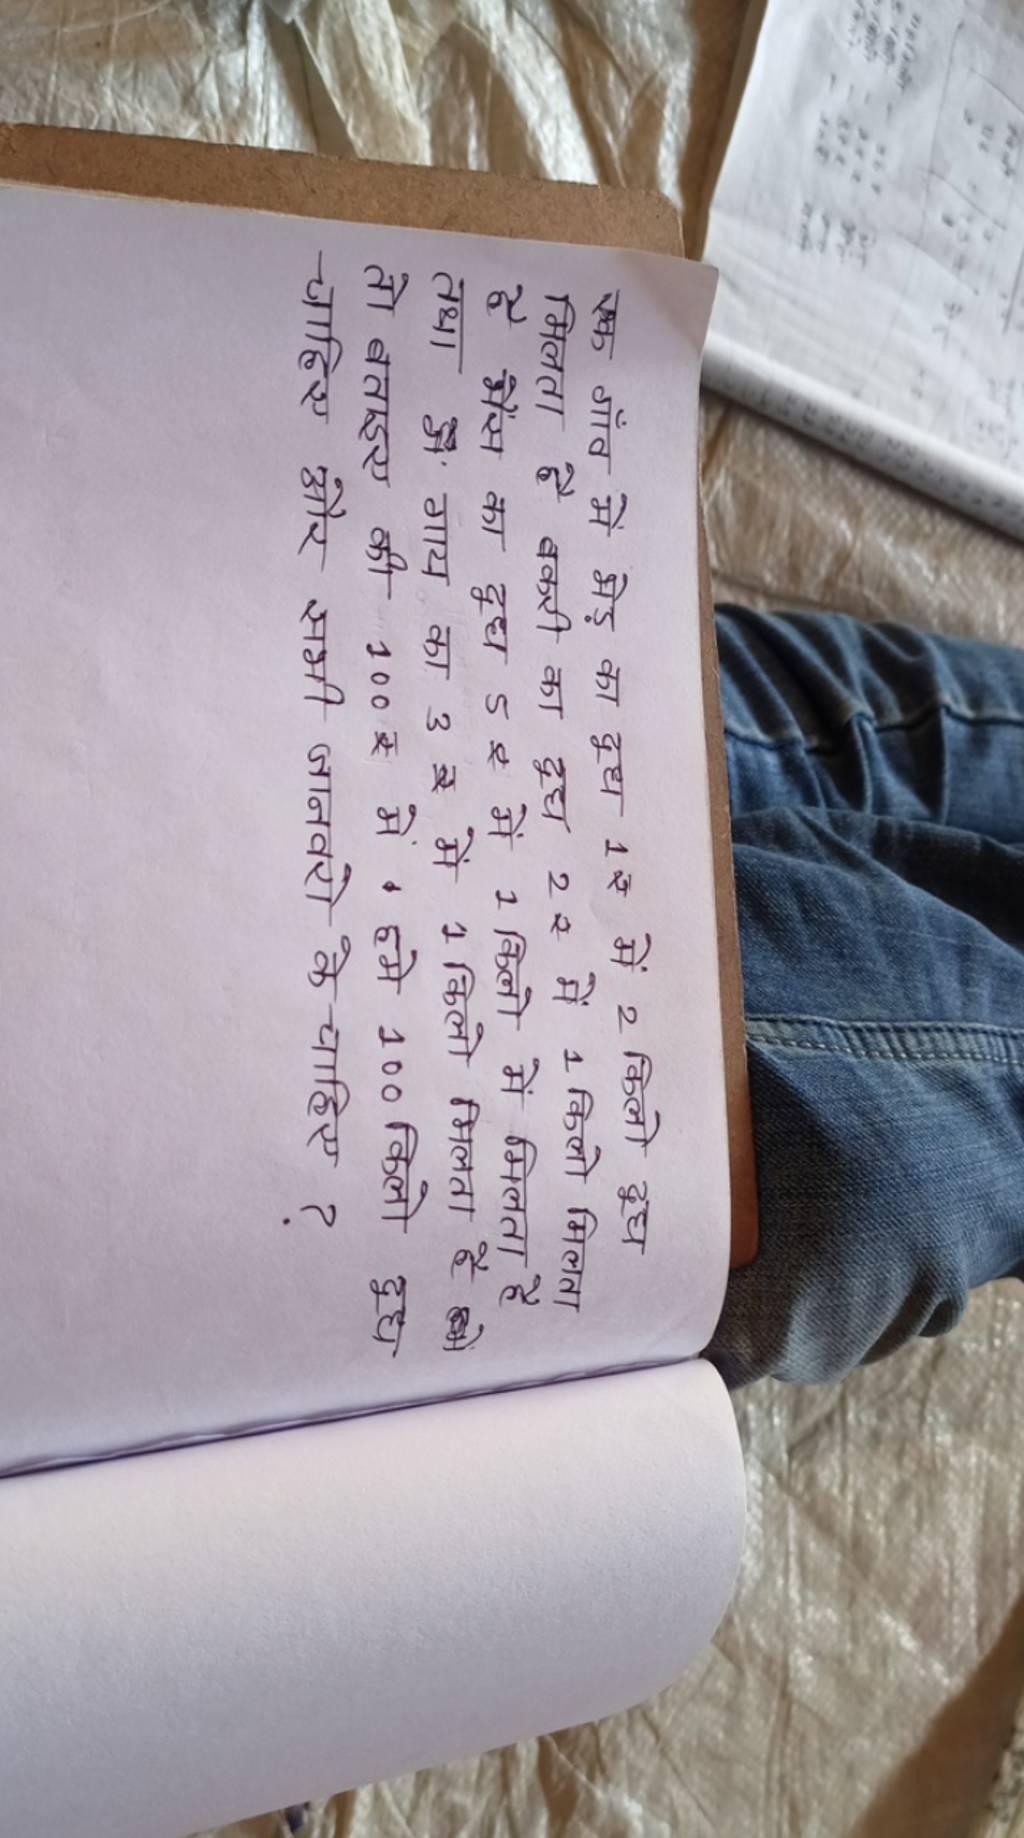 एक गाँव में भेड़ का दूध 1रु में 2 किलो दूध
मिलता है बकरी का दूध 2 रु में 1 किलो मिलता
है भैंस का दूध 5 रु में 1 किलो में मिलता है
तथा गाय का 3 रु में 1 किलो मिलता है
तो बताइए की 100 रु में हमे 100 किलो दूध
चाहिए और सभी जानवरो के चाहिए ?